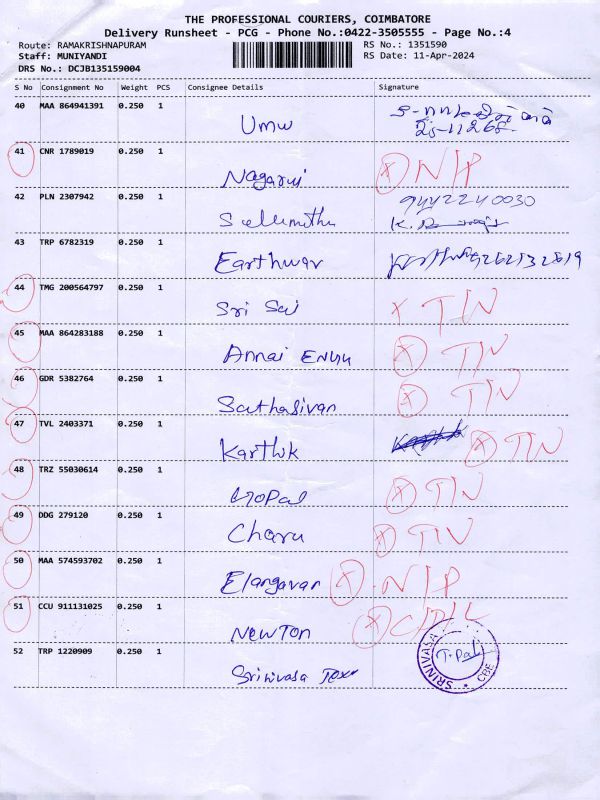 THE PROFESSIONAL COURIERS, COIMBATORE
Delivery Runsheet - PCG - Phone No.:0422-3505555 - Page No.:4
Route: RAMAKRISHNAPURAM RS No.: 1351590
Staff: MUNIYANDI RS Date: 11-Apr-2024
DRS No.: DCJB135159004
S No Consignment No Weight PCS Consignee Details Signature
40 MAA 864941391 0.250 1 Umw
41 CNR 1789019 0.250 1 Nagaruj X N/P
42 PLN 2307942 0.250 1 9442240030
43 TRP 6782319 0.250 1 Earthwar
44 TMG 200564797 0.250 1 Sri Sai X TIN
45 MAA 864283188 0.250 1 Annai X TIN
46 GDR 5382764 0.250 1 Sathasivan X TIN
47 TVL 2403371 0.250 1 Karthik X TIN
48 TRZ 55030614 0.250 1 Gopal X TIN
49 DDG 279120 0.250 1 Charu X TIN
50 MAA 574593702 0.250 1 Elangavan X N/P
51 CCU 911131025 0.250 1 NEWTON X
52 TRP 1220909 0.250 1 Srinivasa Tex SRINIVASA CBE